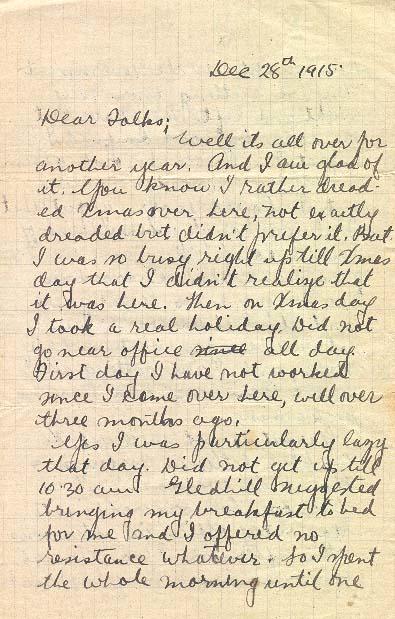 Dec 28th 1915.
Dear Folks;
Well its all over for
another year. And I am glad of
it. You know I rather dread-
ed Xmas over here, not exactly
dreaded but didn't prefer it. But
I was so busy right up till Xmas
day that I didn't realize that
it was here. Then on Xmas day
I took a real holiday. Did not
go near office since all day.
First day I have not worked
since I come over here, well over
three months ago.
Yes I was particularly lazy
that day. Did not get up till
10.30 am. Gledhill suggested
bringing my breakfast to bed
for me and I offered no
resistance whatever. So I spent
the whole morning until one